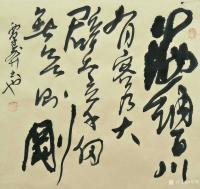 海纳百川
有容乃大
壁立千仞
无欲则刚